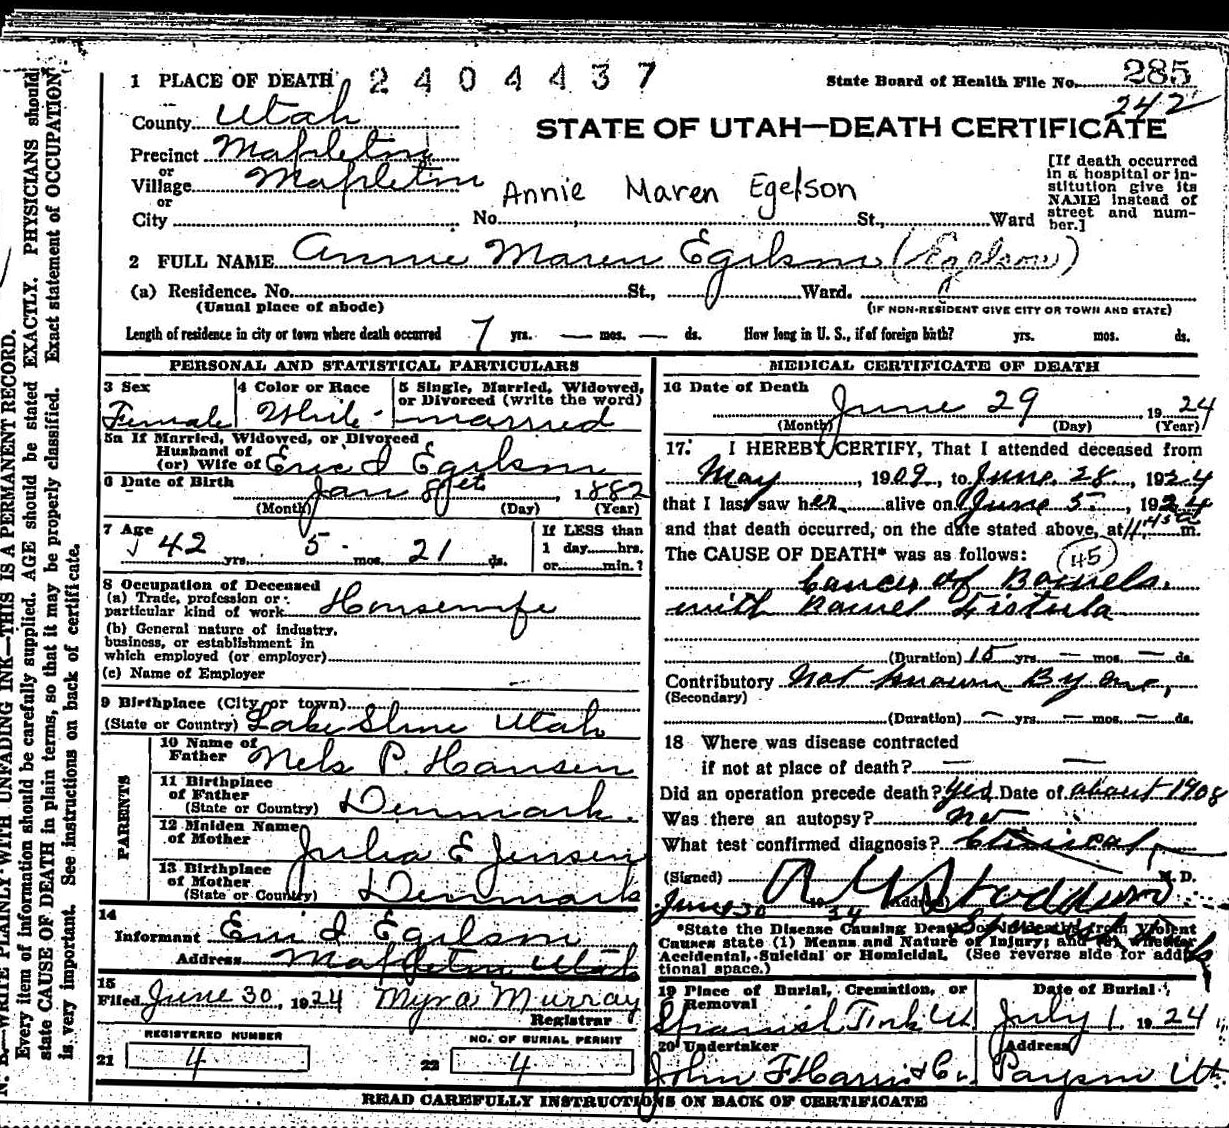 1 PLACE OF DEATH 2404437 State Board of Health File No. 285
242
County Utah
STATE OF UTAH—DEATH CERTIFICATE
Precinct Mapleton
or
Village Mapleton
or
Annie Maren Egelson
City No. St., Ward
[If death occurred
in a hospital or in-
stitution give its
NAME instead of
street and num-
ber.]
2 FULL NAME Annie Maren Egilson (Egelson)
(a) Residence. No. St., Ward.
(Usual place of abode) (IF NON-RESIDENT GIVE CITY OR TOWN AND STATE)
Length of residence in city or town where death occurred 7 yrs. — mos. — ds. How long in U. S., if of foreign birth? yrs. mos. ds.
PERSONAL AND STATISTICAL PARTICULARS
3 Sex 4 Color or Race 5 Single, Married, Widowed,
or Divorced (write the word)
Female White married
5a If Married, Widowed, or Divorced
Husband of
(or) Wife of Eric I Egilson
6 Date of Birth Jan 8, 1882
(Month) (Day) (Year)
7 Age
42 yrs. 5 mos. 21 ds.
If LESS than
1 day hrs.
or min.?
8 Occupation of Deceased
(a) Trade, profession or
particular kind of work Housewife
(b) General nature of industry,
business, or establishment in
which employed (or employer)
(c) Name of Employer
9 Birthplace (City or town)
(State or Country) Lake Shore Utah
PARENTS
10 Name of
Father Nels P. Hansen
11 Birthplace
of Father
(State or Country) Denmark.
12 Maiden Name
of Mother Julia E Jensen
13 Birthplace
of Mother
(State or Country) Denmark
14
Informant Eric I Egilson
Address Mapleton Utah
15
Filed June 30, 1924 Myra Murray
Registrar
REGISTERED NUMBER NO. OF BURIAL PERMIT
21 4 22 4
MEDICAL CERTIFICATE OF DEATH
16 Date of Death
June 29, 1924
(Month) (Day) (Year)
17. I HEREBY CERTIFY, That I attended deceased from
May, 1909, to June 28, 1924
that I last saw her alive on June 5, 1924
and that death occurred, on the date stated above, at 11.45 a m.
The CAUSE OF DEATH* was as follows: (45)
Cancer of Bowels.
with Bowel Fistula
(Duration) 15 yrs. — mos. — ds.
Contributory Not known By me,
(Secondary)
(Duration) — yrs. — mos. — ds.
18 Where was disease contracted
if not at place of death? — —
Did an operation precede death? Yes Date of about 1908
Was there an autopsy? no
What test confirmed diagnosis? Clinical
(Signed) M. D.
June 30 1924 (Address)
*State the Disease Causing Death, or in deaths from Violent
Causes state (1) Means and Nature of Injury; and (2) whether
Accidental, Suicidal or Homicidal. (See reverse side for addi-
tional space.)
19 Place of Burial, Cremation, or
Removal
Date of Burial
Spanish Fork Ut July 1 1924
20 Undertaker Address
John F Harris & Co. Payson Ut.
READ CAREFULLY INSTRUCTIONS ON BACK OF CERTIFICATE
N. B.—WRITE PLAINLY WITH UNFADING INK—THIS IS A PERMANENT RECORD.
Every item of information should be carefully supplied. AGE should be stated EXACTLY. PHYSICIANS should
state CAUSE OF DEATH in plain terms, so that it may be properly classified. Exact statement of OCCUPATION
is very important. See instructions on back of certificate.